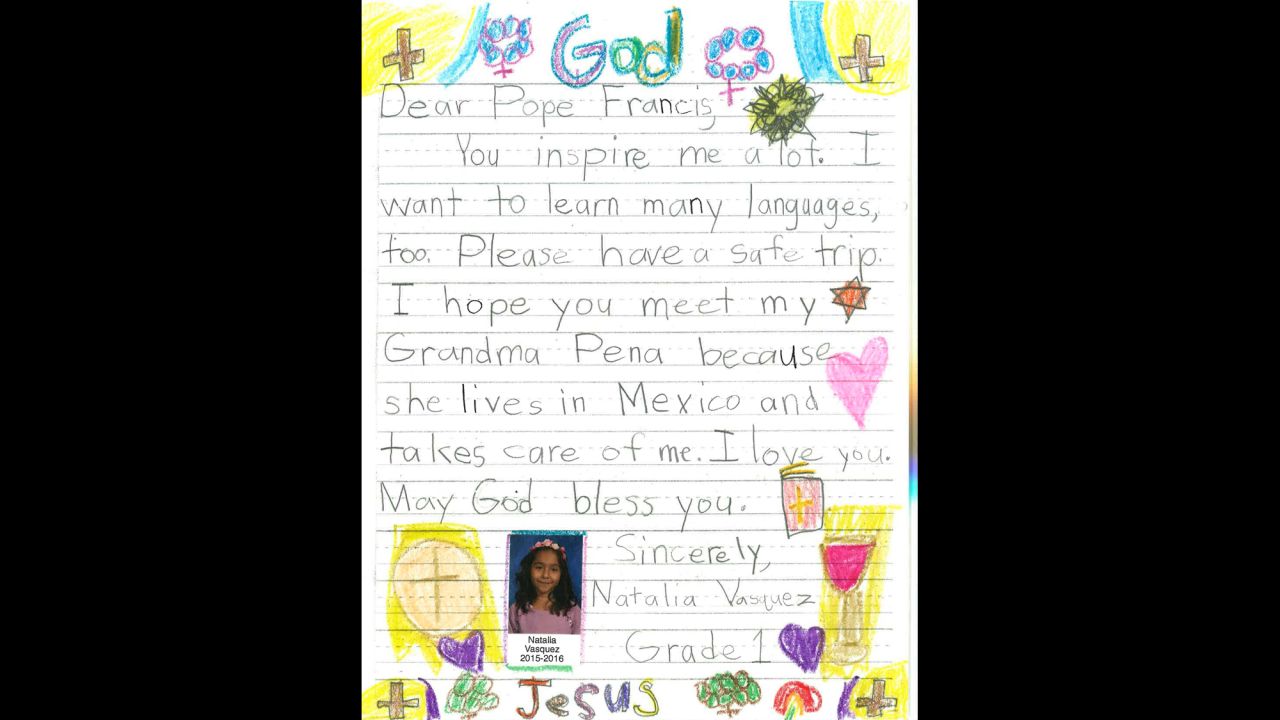 God
Dear Pope Francis,
You inspire me a lot. I
want to learn many languages,
too. Please have a safe trip.
I hope you meet my
Grandma Pena because
she lives in Mexico and
takes care of me. I love you.
May God bless you.
Sincerely,
Natalia Vasquez
Grade 1
Natalia
Vasquez
2015-2016
Jesus